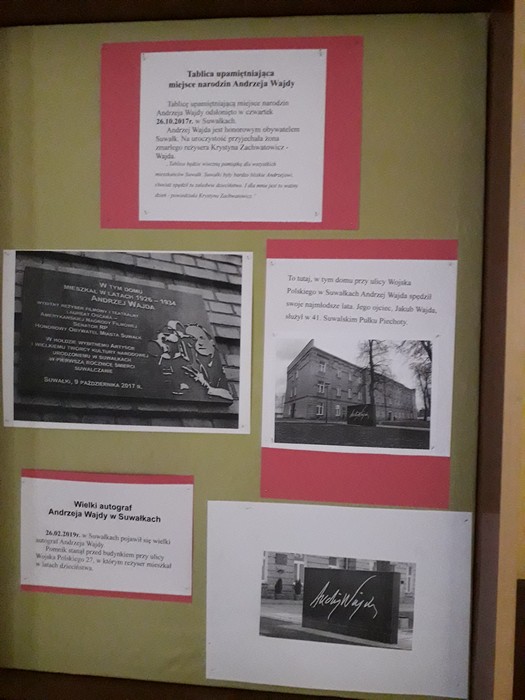 Tablica upamiętniająca
miejsce narodzin Andrzeja Wajdy
Tablicę upamiętniającą miejsce narodzin
Andrzeja Wajdy odsłonięto w czwartek
26.10.2017r. w Suwałkach.
Andrzej Wajda jest honorowym obywatelem
Suwałk. Na uroczystość przyjechała żona
zmarłego reżysera Krystyna Zachwatowicz -
Wajda.
„Tablica będzie wieczną pamiątką dla wszystkich
mieszkańców Suwałk. Suwałki były bardzo bliskie Andrzejowi,
chociaż spędził tu zaledwie dzieciństwo. I dla mnie jest to ważny
dzień - powiedziała Krystyna Zachwatowicz."
W tym domu
mieszkał w latach 1926 – 1934
Andrzej Wajda
wybitny reżyser filmowy i teatralny
laureat Oscara –
Amerykańskiej Nagrody Filmowej
Senator RP
Honorowy Obywatel Miasta Suwałk
W hołdzie wybitnemu Artyście
i wielkiemu twórcy kultury narodowej
urodzonemu w Suwałkach
w pierwszą rocznicę śmierci
suwalczanie
Suwałki, 9 października 2017 r.
To tutaj, w tym domu przy ulicy Wojska
Polskiego w Suwałkach Andrzej Wajda spędził
swoje najmłodsze lata. Jego ojciec, Jakub Wajda,
służył w 41. Suwalskim Pułku Piechoty.
Wielki autograf
Andrzeja Wajdy w Suwałkach
26.02.2019r. w Suwałkach pojawił się wielki
autograf Andrzeja Wajdy.
Pomnik stanął przed budynkiem przy ulicy
Wojska Polskiego 27, w którym reżyser mieszkał
w latach dzieciństwa.
Andrzej Wajda